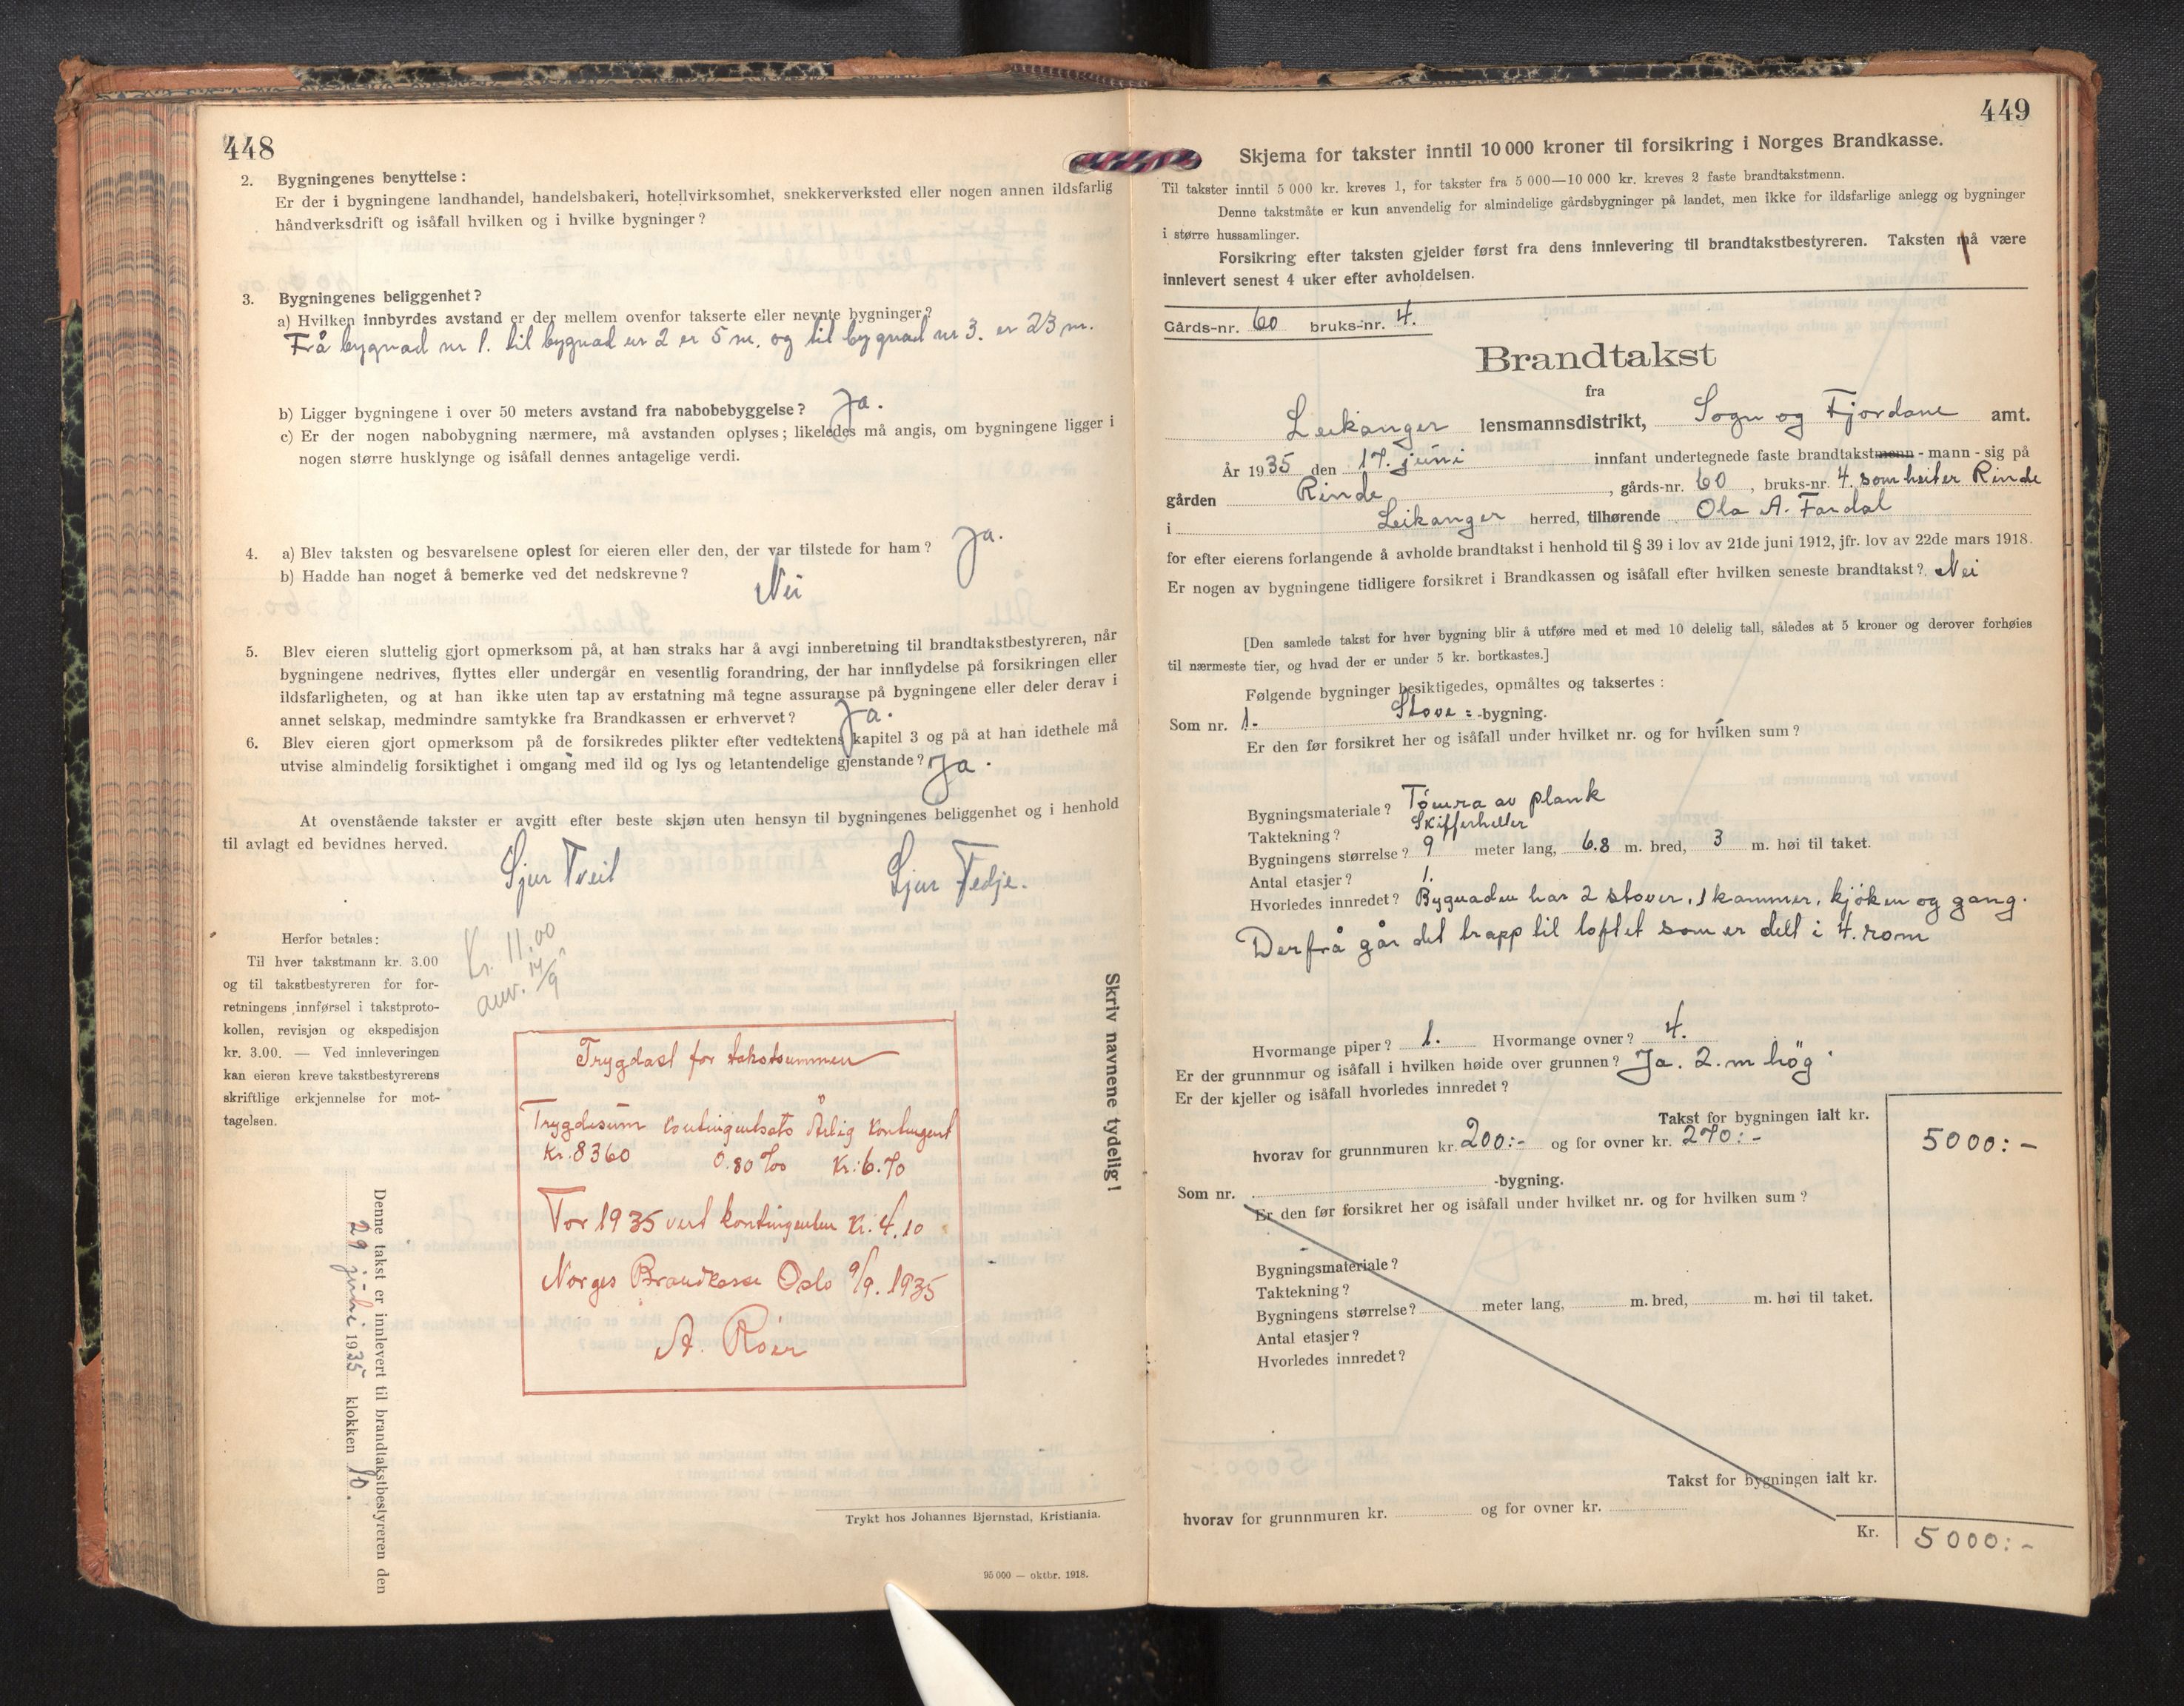 448
2. Bygningenes benyttelse :
Er der i bygningene landhandel, handelsbakeri, hotellvirksomhet, snekkerverksted eller nogen annen ildsfarlig
håndverksdrift og isåfall hvilken og i hvilke bygninger ?
3. Bygningenes beliggenhet ?
a) Hvilken innbyrdes avstand er der mellem ovenfor takserte eller nevnte bygninger ?
Frå bygnad nr 1. til bygnad nr 2 er 5 m. og til bygnad nr 3. er 23 m.
b) Ligger bygningene i over 50 meters avstand fra nabobebyggelse ? Ja.
c) Er der nogen nabobygning nærmere, må avstanden oplyses ; likeledes må angis, om bygningene ligger i
nogen større husklynge og isåfall dennes antagelige verdi.
4. a) Blev taksten og besvarelsene oplest for eieren eller den, der var tilstede for ham ? Ja.
b) Hadde han noget å bemerke ved det nedskrevne ?
Nei
5. Blev eieren sluttelig gjort opmerksom på, at han straks har å avgi innberetning til brandtakstbestyreren, når
bygningene nedrives, flyttes eller undergår en vesentlig forandring, der har innflydelse på forsikringen eller
ildsfarligheten, og at han ikke uten tap av erstatning må tegne assuranse på bygningene eller deler derav i
annet selskap, medmindre samtykke fra Brandkassen er erhvervet ? Ja.
6. Blev eieren gjort opmerksom på de forsikredes plikter efter vedtektens kapitel 3 og på at han idethele må
utvise almindelig forsiktighet i omgang med ild og lys og letantendelige gjenstande ? Ja.
At ovenstående takster er avgitt efter beste skjøn uten hensyn til bygningenes beliggenhet og i henhold
til avlagt ed bevidnes herved.
Sjur Tveit Sjur Fedje.
Herfor betales :
Til hver takstmann kr. 3.00
og til takstbestyreren for for-
retningens innførsel i takstproto-
kollen, revisjon og ekspedisjon
kr. 3.00. — Ved innleveringen
kan eieren kreve takstbestyrerens
skriftlige erkjennelse for mot-
tagelsen.
Kr. 11.00
anv. 14/9
Trygdast for takstsummen
Trygdesum Kontingentsats Årlig Kontingent
Kr. 8360 0.80 ‰ Kr. 6.70
For 1935 vert kontingenten Kr. 4.10
Norges Brandkasse Oslo 9/9. 1935
A. Röer
Skriv navnene tydelig !
Denne takst er innlevert til brandtakstbestyreren den
29 juni 1935 klokken 10.
Trykt hos Johannes Bjørnstad, Kristiania.
95 000 — oktbr. 1918.
449
Skjema for takster inntil 10 000 kroner til forsikring i Norges Brandkasse.
Til takster inntil 5 000 kr. kreves 1, for takster fra 5 000—10 000 kr. kreves 2 faste brandtakstmenn.
Denne takstmåte er kun anvendelig for almindelige gårdsbygninger på landet, men ikke for ildsfarlige anlegg og bygninger
i større hussamlinger.
Forsikring efter taksten gjelder først fra dens innlevering til brandtakstbestyreren. Taksten må være
innlevert senest 4 uker efter avholdelsen.
Gårds-nr. 60 bruks-nr. 4.
Brandtakst
fra
Leikanger lensmannsdistrikt, Sogn og Fjordane amt.
År 1935 den 17. juni innfant undertegnede faste brandtakstmenn - mann - sig på
gården Rinde, gårds-nr. 60, bruks-nr. 4. som heiter Rinde
i Leikanger herred, tilhørende Ola A. Fardal
for efter eierens forlangende å avholde brandtakst i henhold til § 39 i lov av 21de juni 1912, jfr. lov av 22de mars 1918.
Er nogen av bygningene tidligere forsikret i Brandkassen og isåfall efter hvilken seneste brandtakst ? Nei
[Den samlede takst for hver bygning blir å utføre med et med 10 delelig tall, således at 5 kroner og derover forhøies
til nærmeste tier, og hvad der er under 5 kr. bortkastes.]
Følgende bygninger besiktigedes, opmåltes og taksertes :
Som nr. 1. Stove = -bygning.
Er den før forsikret her og isåfall under hvilket nr. og for hvilken sum ?
Bygningsmateriale ? Tømra av plank
Taktekning ? Skifferheller
Bygningens størrelse ? 9 meter lang, 6.8 m. bred, 3 m. høi til taket.
Antal etasjer ? 1.
Hvorledes innredet ? Bygnaden har 2 stover. 1 kammer. kjøken og gang.
Derfrå går det trapp til loftet som er delt i 4. rom
Hvormange piper ? 1. Hvormange ovner ? 4.
Er der grunnmur og isåfall i hvilken høide over grunnen ? Ja. 2. m høg
Er der kjeller og isåfall hvorledes innredet ?
Takst for bygningen ialt kr.
hvorav for grunnmuren kr. 200:- og for ovner kr. 270:- 5000:-
Som nr. -bygning.
Er den før forsikret her og isåfall under hvilket nr. og for hvilken sum ?
Bygningsmateriale ?
Taktekning ?
Bygningens størrelse ? meter lang, m. bred, m. høi til taket.
Antal etasjer ?
Hvorledes innredet ?
Takst for bygningen ialt kr.
hvorav for grunnmuren kr. og for ovner kr.
Kr. 5000:-